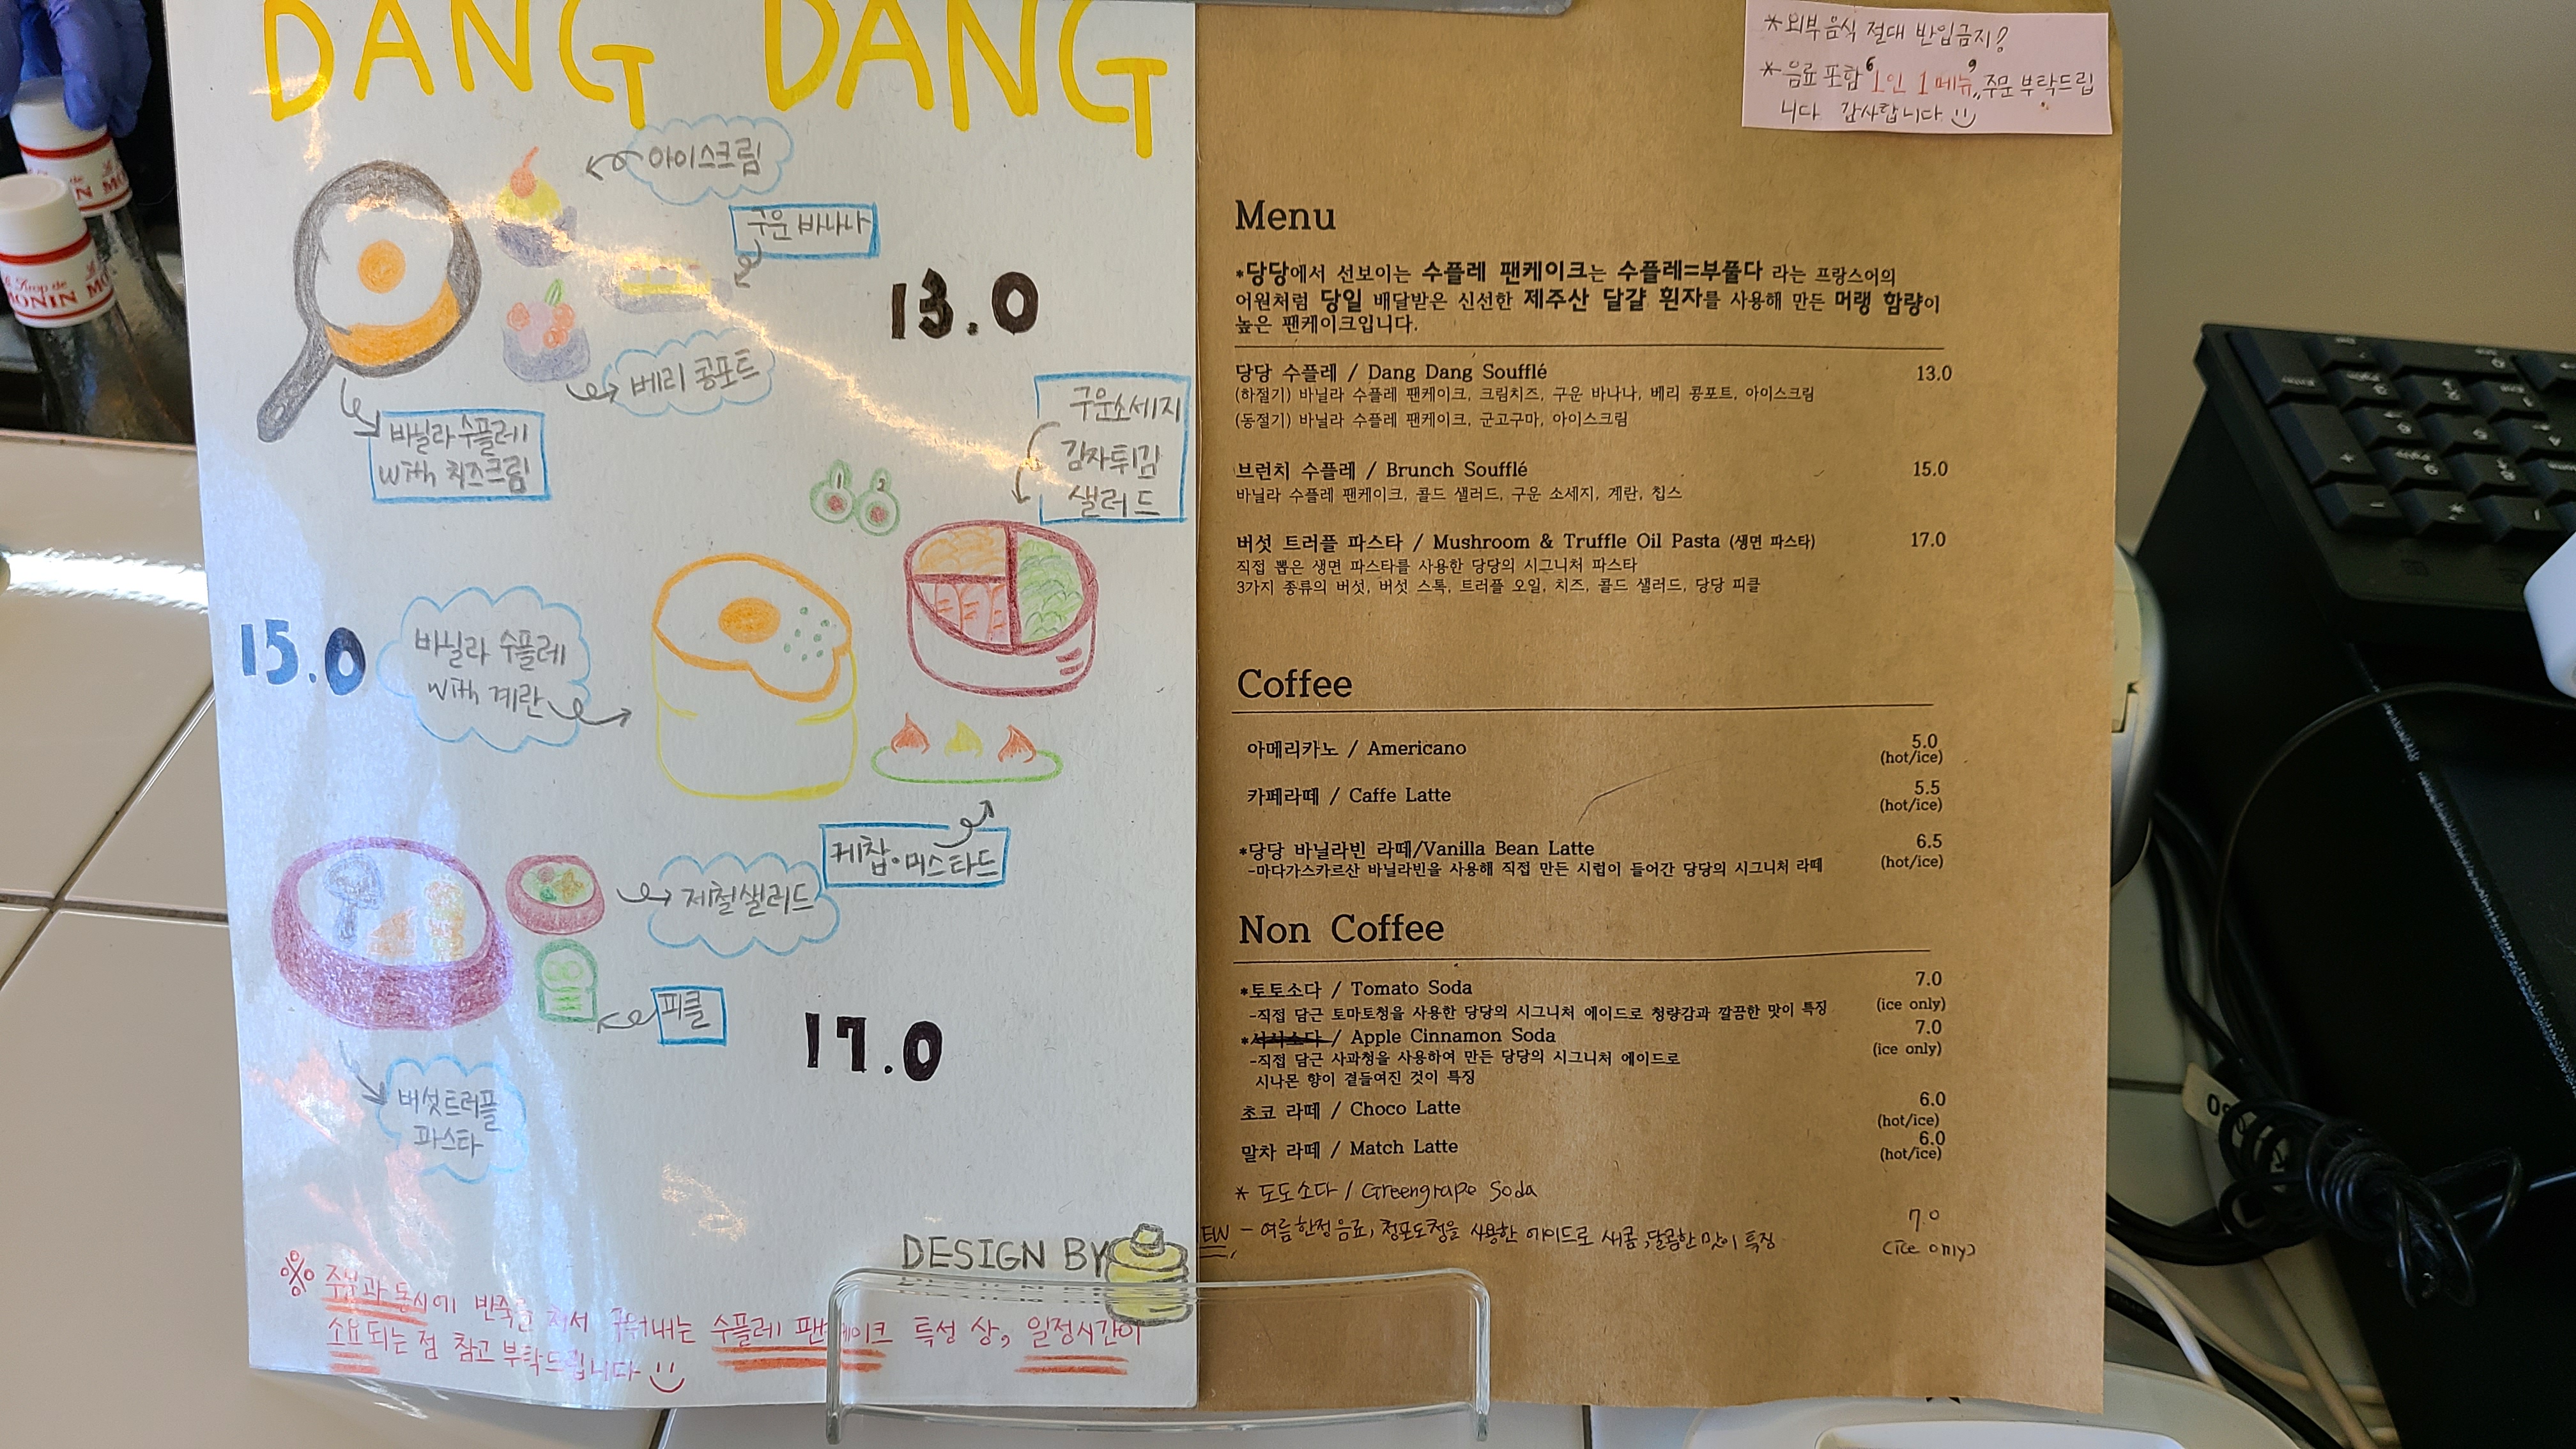 DANG DANG
아이스크림
구운 바나나
13.0
베리 콩포트
바닐라 수플레
with 치즈크림
구운소세지
감자튀김
샐러드
1 2
15.0
바닐라 수플레
with 계란
케찹·머스타드
제철샐러드
피클
17.0
버섯트러플
파스타
DESIGN BY
※ 주문과 동시에 반죽을 쳐서 구워내는 수플레 팬케이크 특성 상, 일정시간이
소요되는 점 참고 부탁드립니다
*외부음식 절대 반입금지?
*음료 포함 "1인 1메뉴" 주문 부탁드립
니다 감사합니다
Menu
*당당에서 선보이는 수플레 팬케이크는 수플레=부풀다 라는 프랑스어의
어원처럼 당일 배달받은 신선한 제주산 달걀 흰자를 사용해 만든 머랭 함량이
높은 팬케이크입니다.
당당 수플레 / Dang Dang Soufflé 13.0
(하절기) 바닐라 수플레 팬케이크, 크림치즈, 구운 바나나, 베리 콩포트, 아이스크림
(동절기) 바닐라 수플레 팬케이크, 군고구마, 아이스크림
브런치 수플레 / Brunch Soufflé 15.0
바닐라 수플레 팬케이크, 콜드 샐러드, 구운 소세지, 계란, 칩스
버섯 트러플 파스타 / Mushroom & Truffle Oil Pasta (생면 파스타) 17.0
직접 뽑은 생면 파스타를 사용한 당당의 시그니처 파스타
3가지 종류의 버섯, 버섯 스톡, 트러플 오일, 치즈, 콜드 샐러드, 당당 피클
Coffee
아메리카노 / Americano 5.0
(hot/ice)
카페라떼 / Caffe Latte 5.5
(hot/ice)
*당당 바닐라빈 라떼/Vanilla Bean Latte 6.5
-마다가스카르산 바닐라빈을 사용해 직접 만든 시럽이 들어간 당당의 시그니처 라떼 (hot/ice)
Non Coffee
*토토소다 / Tomato Soda 7.0
-직접 담근 토마토청을 사용한 당당의 시그니처 에이드로 청량감과 깔끔한 맛이 특징 (ice only)
*사시소다 / Apple Cinnamon Soda 7.0
-직접 담근 사과청을 사용하여 만든 당당의 시그니처 에이드로 (ice only)
시나몬 향이 곁들여진 것이 특징
초코 라떼 / Choco Latte 6.0
(hot/ice)
말차 라떼 / Match Latte 6.0
(hot/ice)
* 도도소다 / Greengrape Soda
EW - 여름한정음료, 청포도청을 사용한 에이드로 새콤,달콤한 맛이 특징 7.0
(ice only)
MONIN